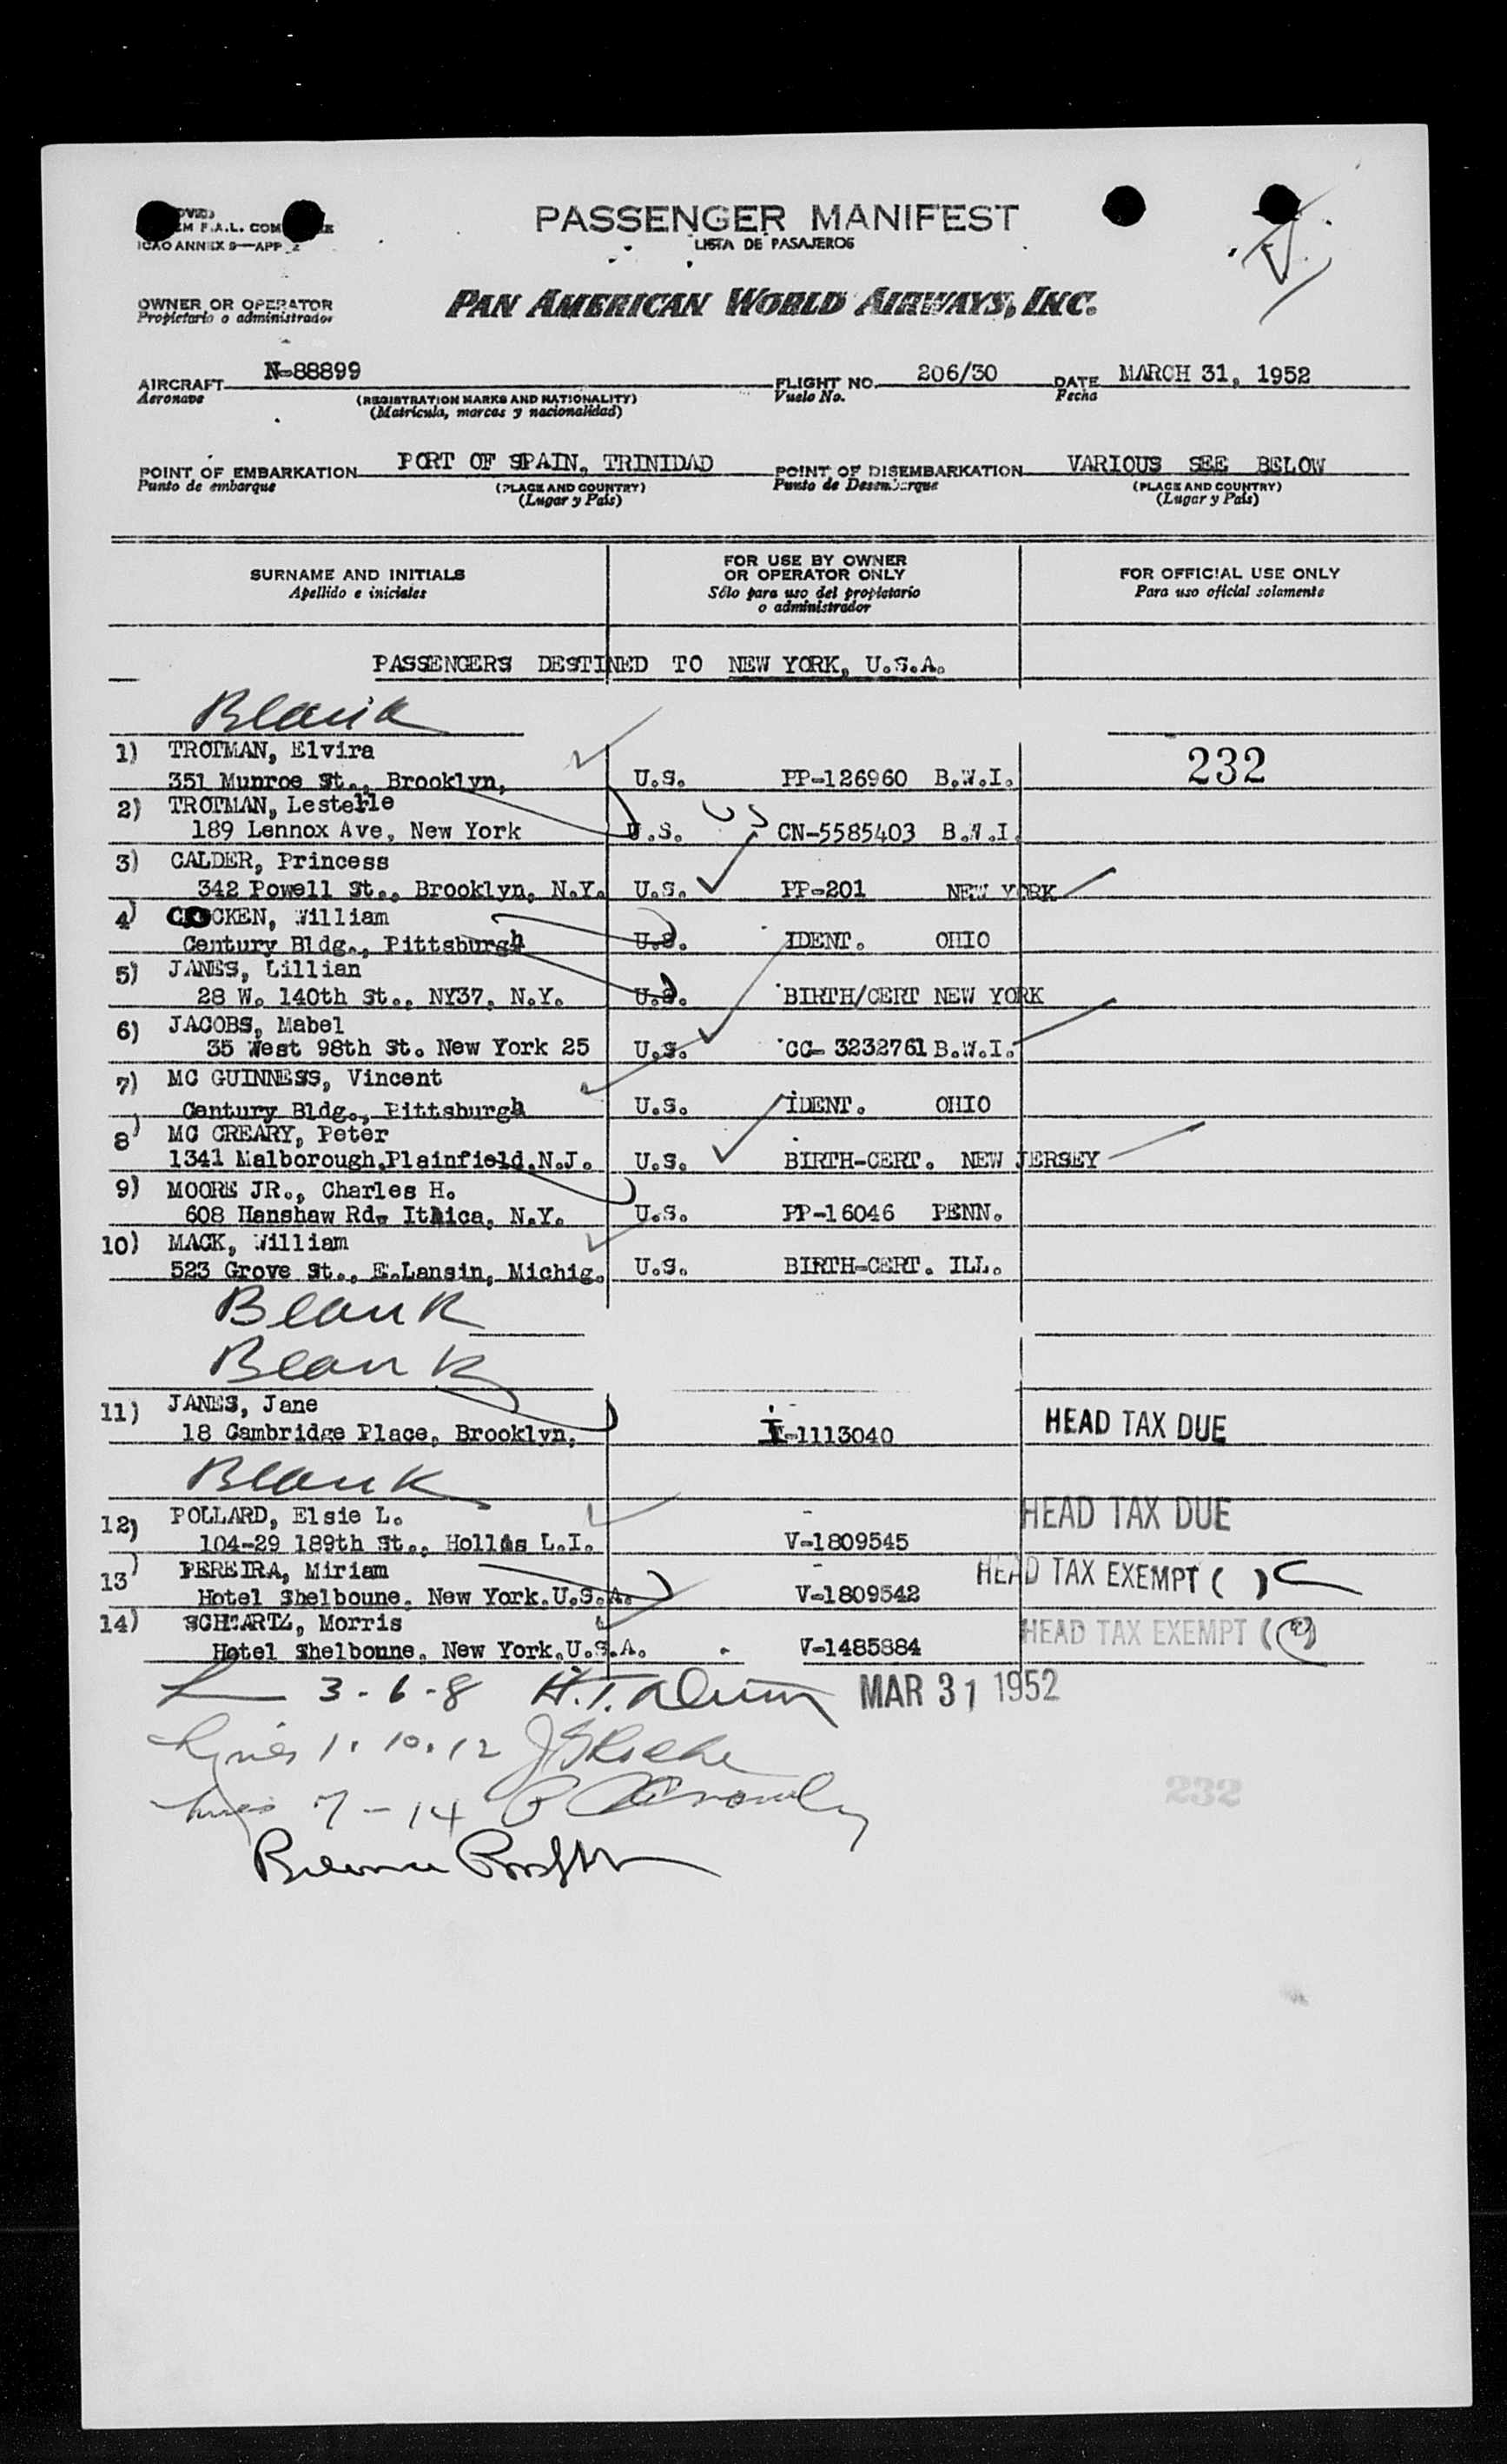 ICAO ANNEX 9—APP 2
PASSENGER MANIFEST
LISTA DE PASAJEROS
OWNER OR OPERATOR
Propietario o administrador
PAN AMERICAN WORLD AIRWAYS, INC.
AIRCRAFT N-88899 FLIGHT NO. 206/30 DATE MARCH 31, 1952
Aeronave (REGISTRATION MARKS AND NATIONALITY) Vuelo No. Fecha
(Matrícula, marcas y nacionalidad)
POINT OF EMBARKATION PORT OF SPAIN, TRINIDAD POINT OF DISEMBARKATION VARIOUS SEE BELOW
Punto de embarque (PLACE AND COUNTRY) Punto de Desembarque (PLACE AND COUNTRY)
(Lugar y País) (Lugar y País)
SURNAME AND INITIALS FOR USE BY OWNER OR OPERATOR ONLY FOR OFFICIAL USE ONLY
Apellido e iniciales Sólo para uso del propietario o administrador Para uso oficial solamente
PASSENGERS DESTINED TO NEW YORK, U.S.A.
Blank
1) TROTMAN, Elvira
351 Munroe St., Brooklyn, U.S. PP-126960 B.W.I. 232
2) TROTMAN, Lestelle
189 Lennox Ave, New York U.S. US CN-5585403 B.W.I.
3) CALDER, Princess
342 Powell St., Brooklyn, N.Y. U.S. PP-201 NEW YORK
4) COCKEN, William
Century Bldg., Pittsburgh U.S. IDENT. OHIO
5) JANES, Lillian
28 W. 140th St., NY37, N.Y. U.S. BIRTH/CERT NEW YORK
6) JACOBS, Mabel
35 West 98th St. New York 25 U.S. CC- 3232761 B.W.I.
7) MC GUINNESS, Vincent
Century Bldg., Pittsburgh U.S. IDENT. OHIO
8) MC CREARY, Peter
1341 Malborough,Plainfield,N.J. U.S. BIRTH-CERT. NEW JERSEY
9) MOORE JR., Charles H.
608 Hanshaw Rd, Ithica, N.Y. U.S. PP-16046 PENN.
10) MACK, William
523 Grove St., E.Lansin, Michig. U.S. BIRTH-CERT. ILL.
Blank
Blank
11) JANES, Jane
18 Cambridge Place, Brooklyn, I-1113040 HEAD TAX DUE
Blank
12) POLLARD, Elsie L. HEAD TAX DUE
104-29 189th St., Hollis L.I. V-1809545
13) PEREIRA, Miriam HEAD TAX EXEMPT ( )
Hotel Shelboune, New York,U.S.A. V-1809542
14) SCHWARTZ, Morris HEAD TAX EXEMPT ( )
Hotel Shelbonne, New York,U.S.A. V-1485884
3-6-8 MAR 31 1952
1. 10. 12
7-14
232